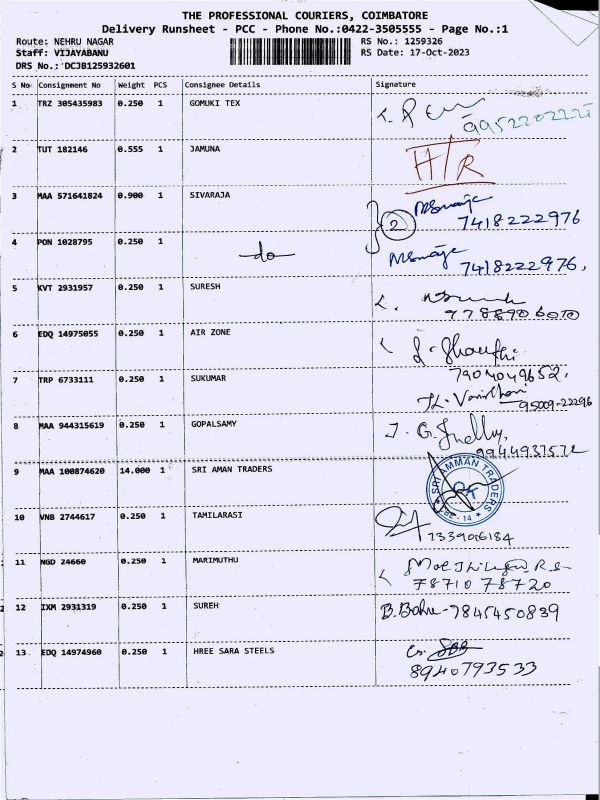 THE PROFESSIONAL COURIERS, COIMBATORE
Delivery Runsheet - PCC - Phone No.:0422-3505555 - Page No.:1
Route: NEHRU NAGAR RS No.: 1259326
Staff: VIJAYABANU RS Date: 17-Oct-2023
DRS No.: DCJB125932601
S No Consignment No Weight PCS Consignee Details Signature
1 TRZ 305435983 0.250 1 GOMUKI TEX
2 TUT 182146 0.555 1 JAMUNA HTR
3 MAA 571641824 0.900 1 SIVARAJA 2 7418222976
4 PON 1028795 0.250 1 do 7418222976,
5 KVT 2931957 0.250 1 SURESH
6 EDQ 14975055 0.250 1 AIR ZONE
7904049652.
7 TRP 6733111 0.250 1 SUKUMAR
95009-22296
8 MAA 944315619 0.250 1 GOPALSAMY
9 MAA 100874620 14.000 1 SRI AMAN TRADERS SRI AMMAN TRADERS
10 VNB 2744617 0.250 1 TAMILARASI
7339016184
11 NGD 24660 0.250 1 MARIMUTHU
78710 78720
12 IXM 2931319 0.250 1 SUREH 7845450839
13 EDQ 14974960 0.250 1 HREE SARA STEELS
8940793533